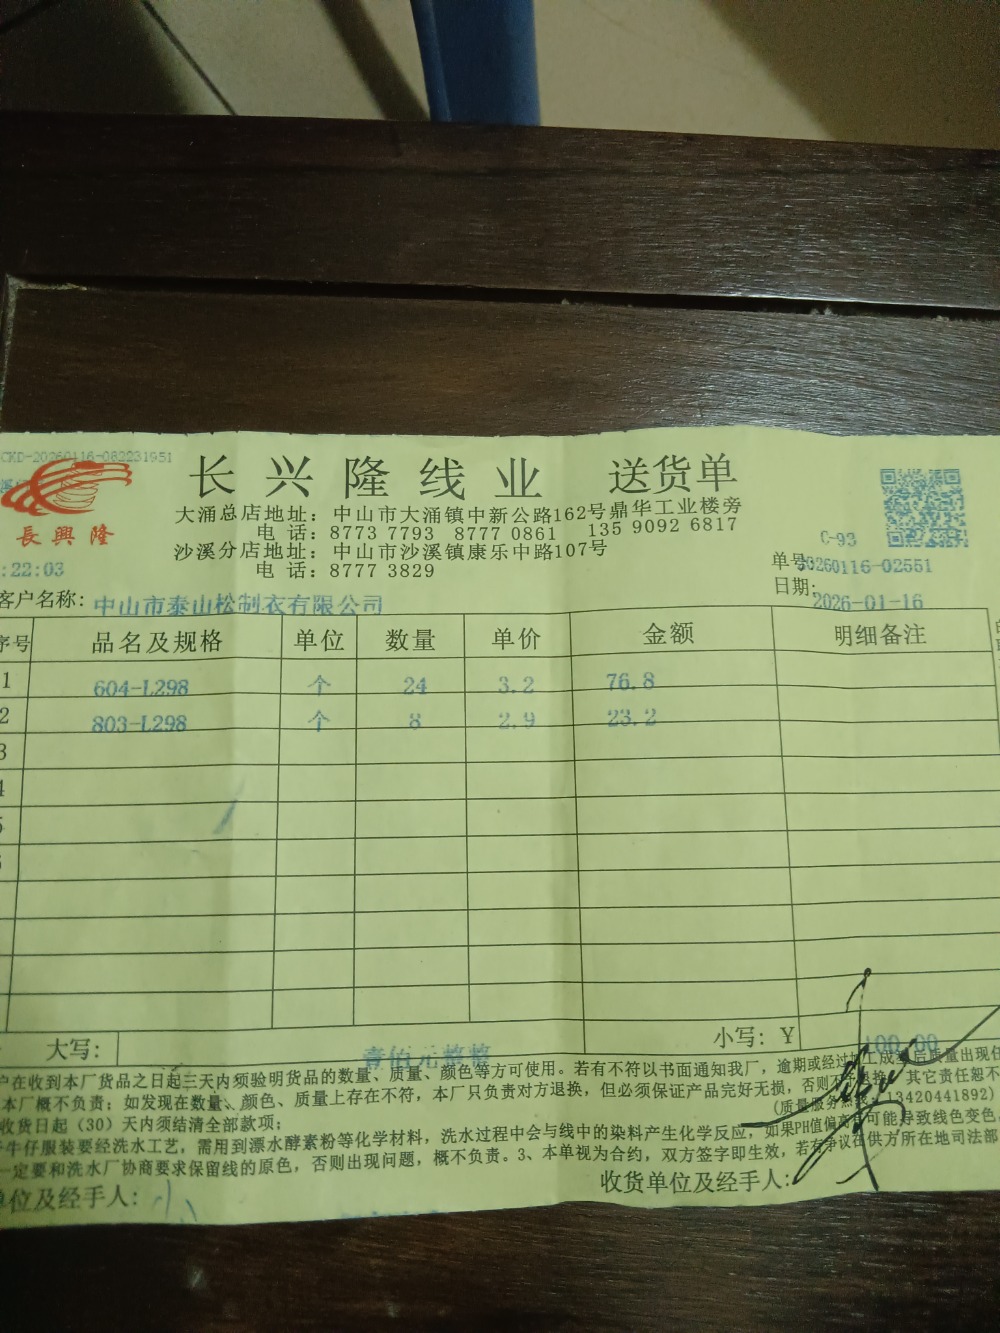 CKD-20260116-082231951
長興隆
长兴隆线业 送货单
大涌总店地址：中山市大涌镇中新公路162号鼎华工业楼旁
电 话：8773 7793 8777 0861 135 9092 6817
沙溪分店地址：中山市沙溪镇康乐中路107号
电 话：8777 3829
C-93
:22:03
单号:20260116-02551
日期:2026-01-16
客户名称：中山市泰山松制衣有限公司
序号 品名及规格 单位 数量 单价 金额 明细备注
1 604-L298 个 24 3.2 76.8
2 803-L298 个 8 2.9 23.2
3
4
5
大写： 壹佰元整整 小写：¥ 100.00
户在收到本厂货品之日起三天内须验明货品的数量、质量、颜色等方可使用。若有不符以书面通知我厂，逾期或经过加工成 后质量出现任
本厂概不负责；如发现在数量、颜色、质量上存在不符，本厂只负责对方退换，但必须保证产品完好无损，否则不予退换，其它责任恕不
(质量服务热线：13420441892)
收货日起（30）天内须结清全部款项；
牛仔服装要经洗水工艺，需用到漂水酵素粉等化学材料，洗水过程中会与线中的染料产生化学反应，如果PH值偏高 可能导致线色变色，
一定要和洗水厂协商要求保留线的原色，否则出现问题，概不负责。3、本单视为合约，双方签字即生效，若有争议在供方所在地司法部
单位及经手人： 收货单位及经手人：